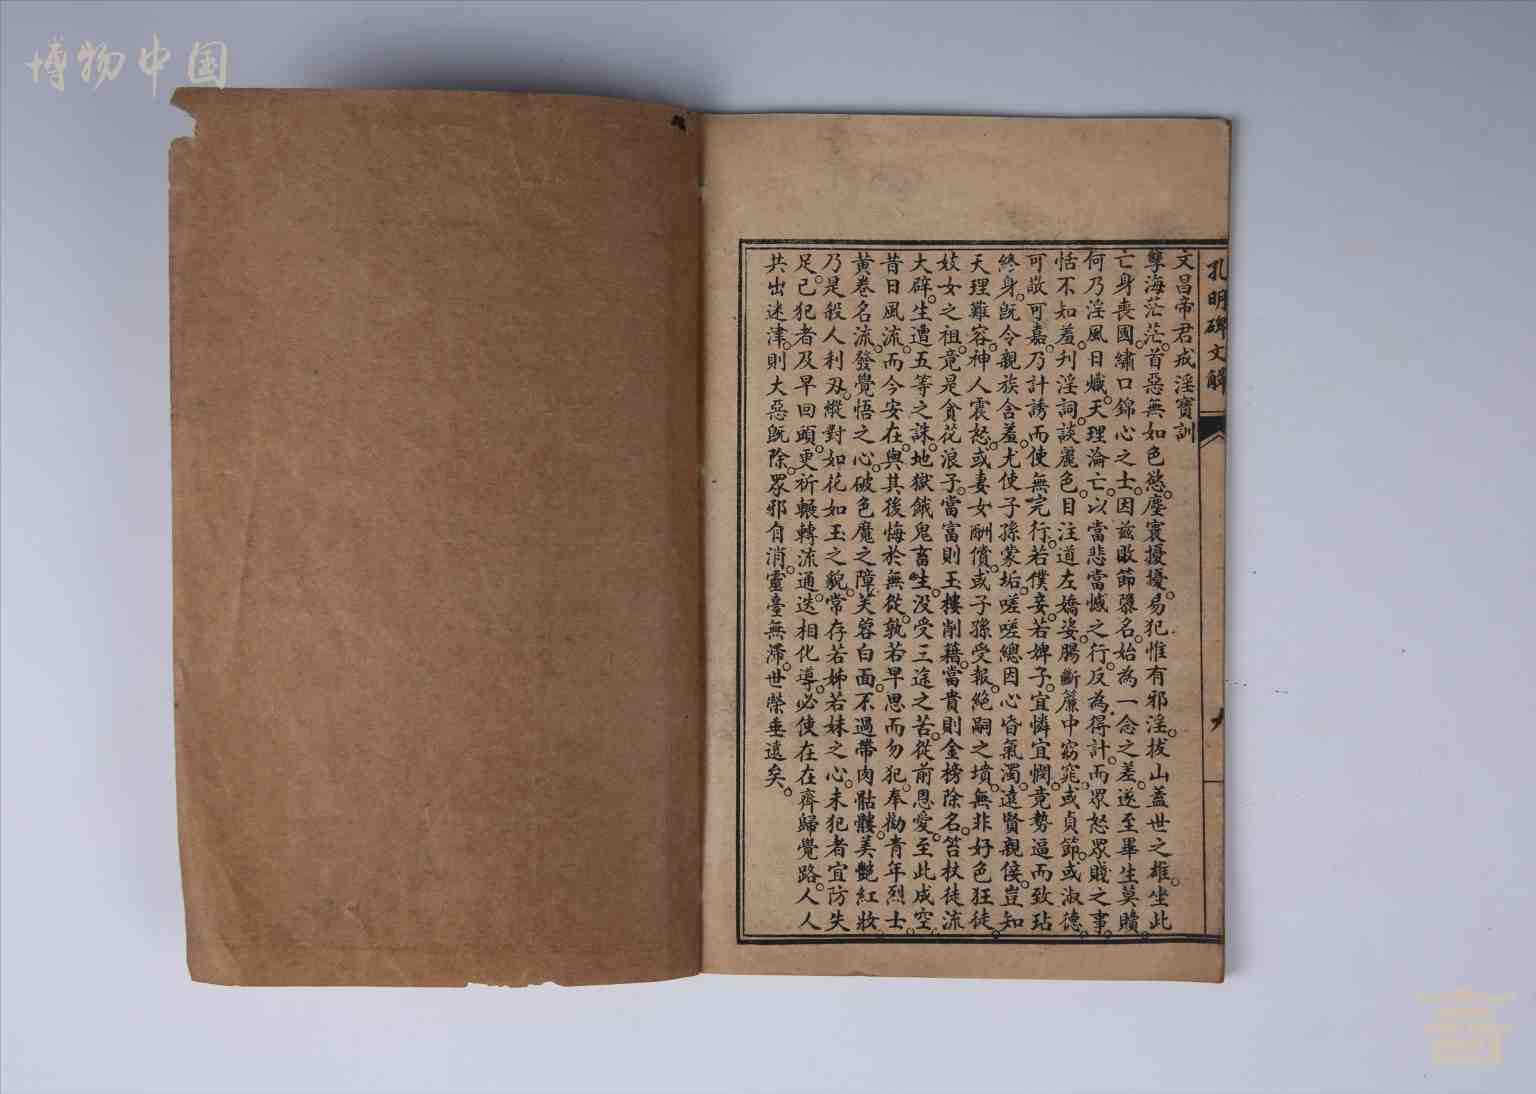 博物中国
孔明碑文解
九
文昌帝君戒淫寶訓
孽海茫茫。首惡無如色慾。塵寰擾擾。易犯惟有邪淫。拔山蓋世之雄。坐此
亡身喪國。繡口錦心之士。因茲敗節隳名。始為一念之差。遂至畢生莫贖。
何乃淫風日熾。天理淪亡。以當悲當憾之行。反為得計。而眾怒眾賤之事。
恬不知羞。刋淫詞。談麗色。目注道左嬌姿。腸斷簾中窈窕。或貞節。或淑德。
可敬可嘉。乃計誘而使無完行。若僕妾。若婢子。宜憐宜憫。竟勢逼而致玷
終身。旣令親族含羞。尤使子孫蒙垢。嗟嗟總因心昏氣濁。遠賢親佞。豈知
天理難容。神人震怒。或妻女酬償。或子孫受報。絶嗣之墳。無非好色狂徒。
妓女之祖。竟是貪花浪子。當富則玉樓削籍。當貴則金榜除名。笞杖徒流
大辟。生遭五等之誅。地獄餓鬼畜生。没受三途之苦。從前恩愛。至此成空。
昔日風流。而今安在。與其後悔於無從。孰若早思而勿犯。奉勸青年烈士。
黃卷名流。發覺悟之心。破色魔之障。芙蓉白面。不過帶肉骷髏。美艷紅妝
乃是殺人利刃。縱對如花如玉之貌。常存若姊若妹之心。未犯者宜防失
足。已犯者及早回頭。更祈輾轉流通。迭相化導。必使在在齊歸覺路。人人
共出迷津。則大惡旣除。眾邪自消。靈臺無滯。世榮垂遠矣。